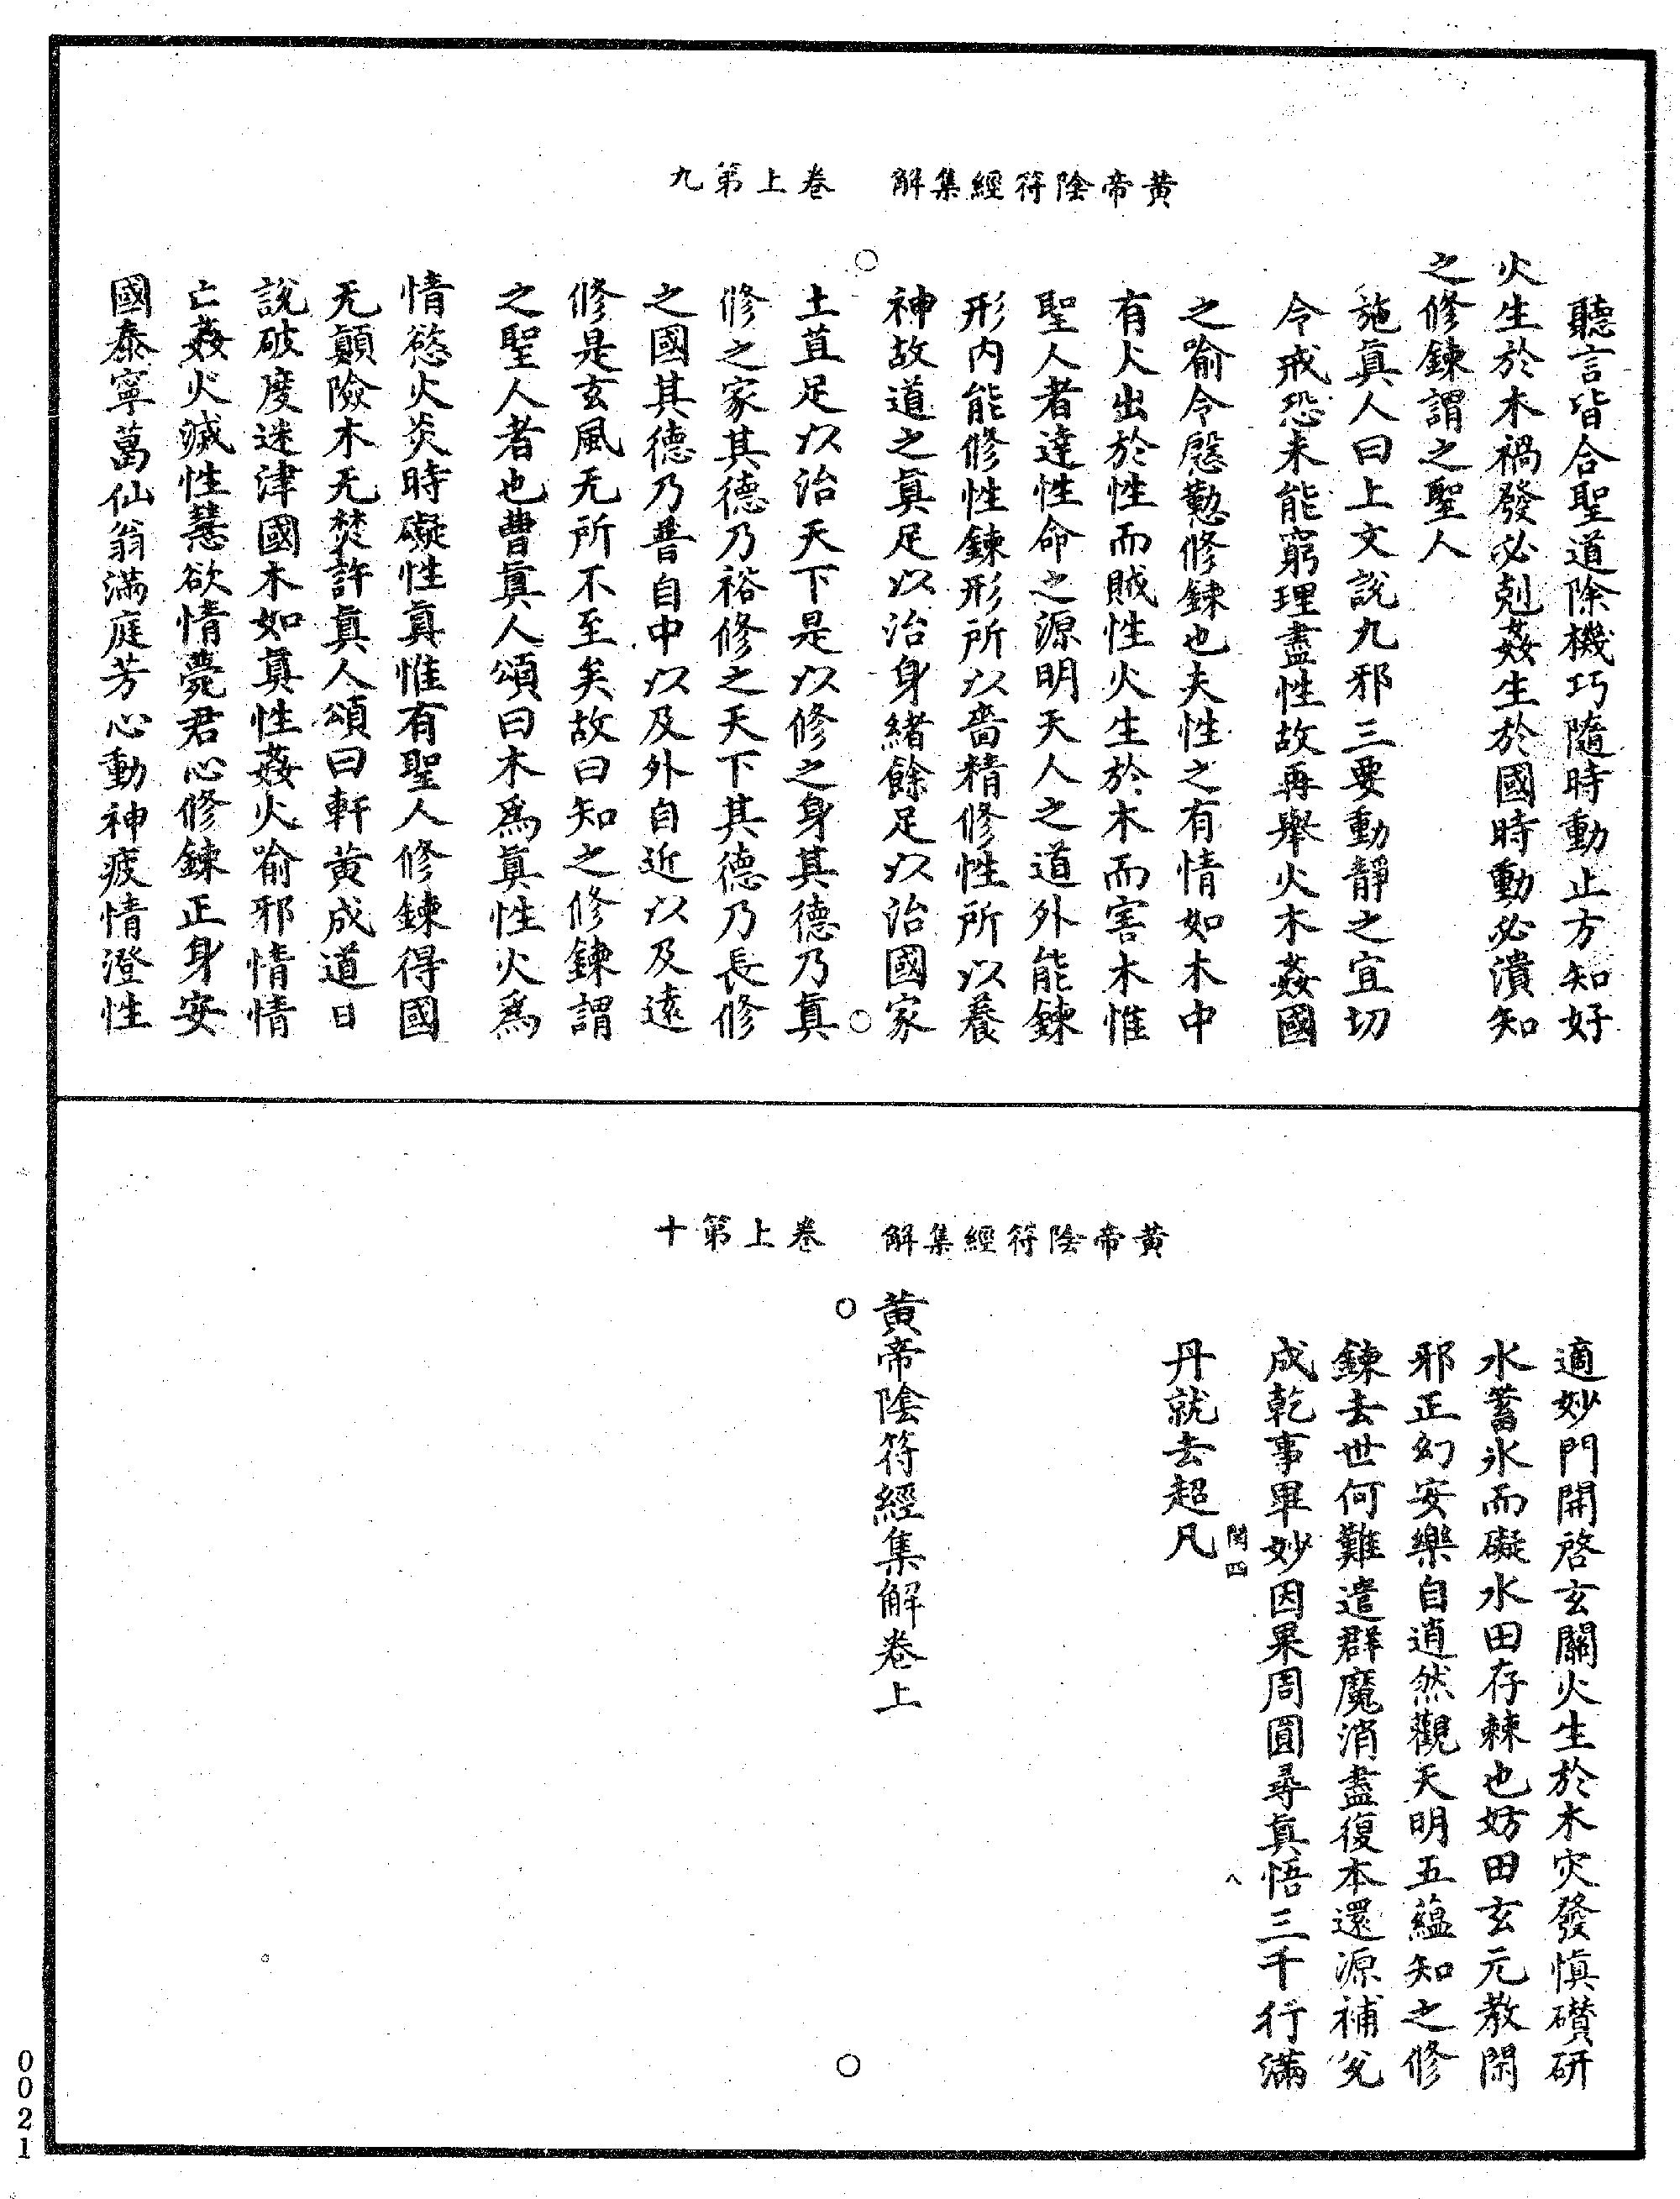 黃帝陰符經集解　卷上第九
聽言皆合聖道除機巧隨時動止方知好
火生於木禍發必剋姦生於國時動必潰知
之修鍊謂之聖人
施真人曰上文說九邪三要動靜之宜切
令戒恐未能窮理盡性故再舉火木姦國
之喻令慇懃修鍊也夫性之有情如木中
有火出於性而賊性火生於木而害木惟
聖人者達性命之源明天人之道外能鍊
形內能修性鍊形所以嗇精修性所以養
神故道之真足以治身緒餘足以治國家
土苴足以治天下是以修之身其德乃真
修之家其德乃裕修之天下其德乃長修
之國其德乃普自中以及外自近以及遠
修是玄風无所不至矣故曰知之修鍊謂
之聖人者也曹真人頌曰木爲真性火爲
情慾火炎時礙性真惟有聖人修鍊得國
无顛險木无焚許真人頌曰軒黃成道日
說破度迷津國木如真性姦火喻邪情情
亡姦火滅性慧欲情薨君心修鍊正身安
國泰寧葛仙翁滿庭芳心動神疲情澄性
黃帝陰符經集解　卷上第十
適妙門開啓玄關火生於木灾發慎礸研
水蓄氷而礙水田存棘也妨田玄元教閑
邪正幻安樂自逍然觀天明五蘊知之修
鍊去世何難遣群魔消盡復本還源補兊
成乾事畢妙因果周圓尋真悟三千行滿
閏四　八
丹就去超凡
黃帝陰符經集解卷上
0021